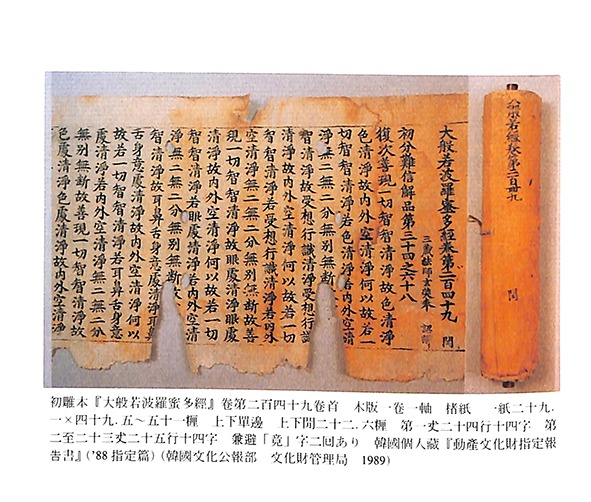 大般若波羅蜜多經卷第二百四十九 閏
初分難信解品第三十四之六十八
三藏法師玄奘奉 詔譯
復次善現一切智智清淨故色清淨
色清淨故內外空清淨何以故若一
切智智清淨若色清淨若內外空清
淨無二無
智清淨故受想行識清淨受想行識
清淨故內外空清淨何以故若一切
智智清淨若受想行識清淨若內外
空清淨無二無二分無別無斷故善
現一切智智清淨故眼處清淨眼處
清淨故內外空清淨何以故若一切
智智清淨若眼處清淨若內外空清
淨無二無二分無別無斷故
智智清淨故耳鼻舌身意處清淨耳鼻
舌身意處清淨故內外空清淨何以
故若一切智智清淨若耳鼻舌身意
處清淨若內外空清淨無二無二分
無別無斷故善現一切智智清淨故
色處清淨色處清淨故內外空清淨
般若經卷第二百卌九 閏
初雕本『大般若波羅蜜多經』卷第二百四十九卷首 木版 一卷一軸 楮紙 一紙二十九.
一×四十九.五～五十一糎 上下單邊 上下間二十二.六糎 第一丈二十四行十四字 第
二至二十三丈二十五行十四字 兼避「竟」字二回あり 韓國個人藏『動產文化財指定報
告書』('88 指定篇)(韓國文化公報部 文化財管理局 1989)